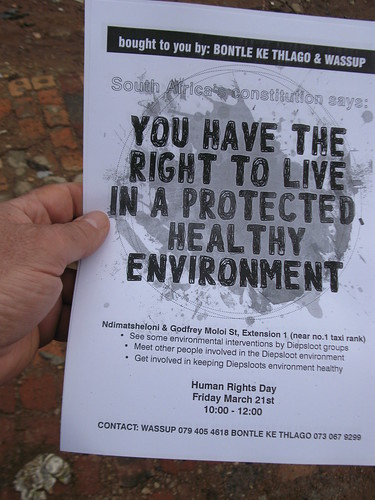 bought to you by: BONTLE KE THLAGO & WASSUP
South Africa's constitution says:
YOU HAVE THE
RIGHT TO LIVE
IN A PROTECTED
HEALTHY
ENVIRONMENT
Ndimatsheloni & Godfrey Moloi St, Extension 1 (near no.1 taxi rank)
• See some environmental interventions by Diepsloot groups
• Meet other people involved in the Diepsloot environment
• Get involved in keeping Diepsloots environment healthy
Human Rights Day
Friday March 21st
10:00 - 12:00
CONTACT: WASSUP 079 405 4618 BONTLE KE THLAGO 073 067 9299